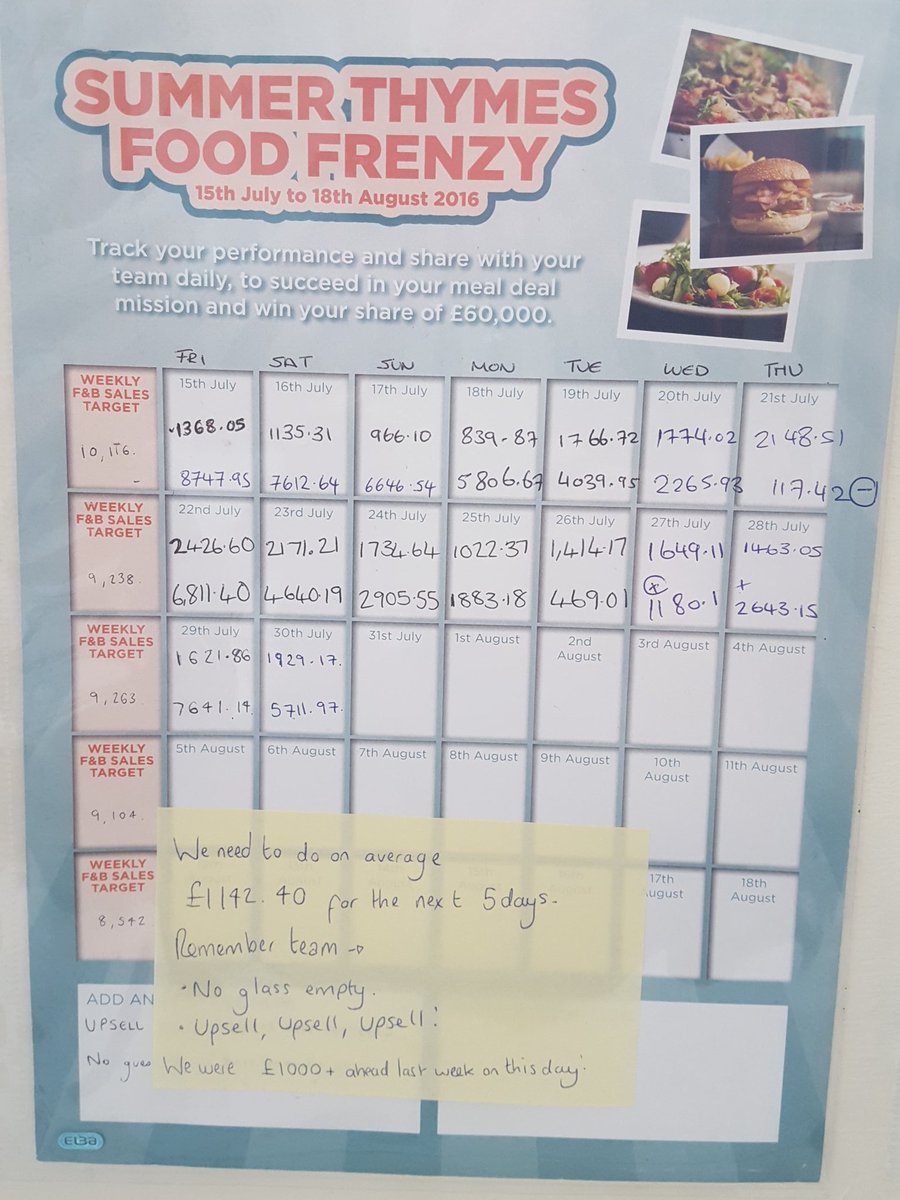 SUMMER THYMES
FOOD FRENZY
15th July to 18th August 2016
Track your performance and share with your
team daily, to succeed in your meal deal
mission and win your share of £60,000.
FRI SAT SUN MON TUE WED THU
WEEKLY
F&B SALES
TARGET
10,116.
15th July 16th July 17th July 18th July 19th July 20th July 21st July
1368.05 1135.31 966.10 839.87 1766.72 1774.02 2148.51
8747.95 7612.64 6646.54 5806.67 4039.95 2265.93 117.42 -
WEEKLY
F&B SALES
TARGET
9,238.
22nd July 23rd July 24th July 25th July 26th July 27th July 28th July
2426.60 2171.21 1734.64 1022.37 1,414.17 1649.11 1463.05
6,811.40 4640.19 2905.55 1883.18 469.01 + 1180.1 + 2643.15
WEEKLY
F&B SALES
TARGET
9,263
29th July 30th July 31st July 1st August 2nd August 3rd August 4th August
1621.86 1929.17.
7641.14 5711.97
WEEKLY
F&B SALES
TARGET
9,104.
5th August 6th August 7th August 8th August 9th August 10th August 11th August
WEEKLY
F&B SALES
TARGET
8,542
17th August 18th August
We need to do on average
£1142.40 for the next 5days.
Remember team →
• No glass empty.
• Upsell, Upsell, Upsell!
We were £1000+ ahead last week on this day!
ADD AN
UPSELL
No
ELBa